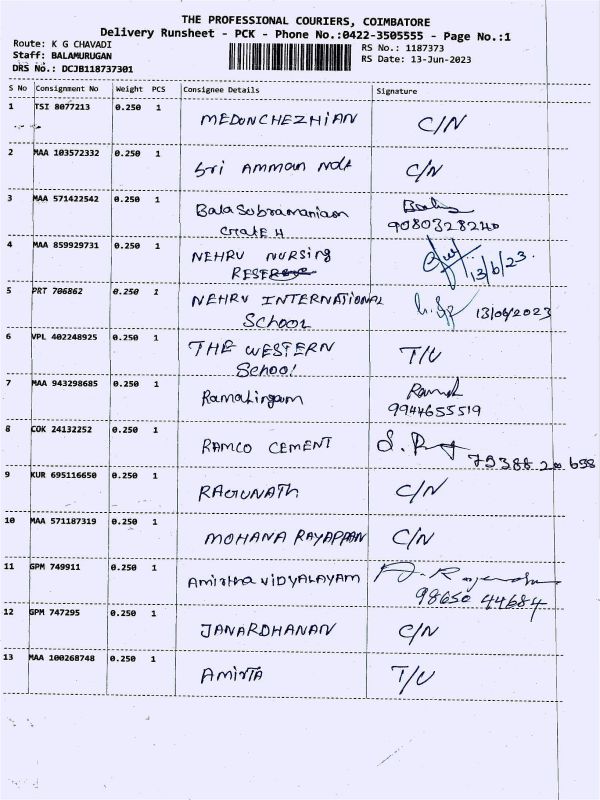 THE PROFESSIONAL COURIERS, COIMBATORE
Delivery Runsheet - PCK - Phone No.:0422-3505555 - Page No.:1
Route: K G CHAVADI
RS No.: 1187373
Staff: BALAMURUGAN
RS Date: 13-Jun-2023
DRS No.: DCJB118737301
S No Consignment No Weight PCS Consignee Details Signature
1 TSI 8077213 0.250 1 MEDUNCHEZHIAN C/N
2 MAA 103572332 0.250 1 Sri AMMAN C/N
3 MAA 571422542 0.250 1 BalaSubramaniam
9080328240
4 MAA 859929731 0.250 1 NEHRU NURSING
13/6/23.
5 PRT 706862 0.250 1 NEHRU INTERNATIONAL
School 13/06/2023
6 VPL 402248925 0.250 1 THE WESTERN T/U
School
7 MAA 943298685 0.250 1 Ramalingam
9944655519
8 COK 24132252 0.250 1 RAMCO CEMENT
75388 20 658
9 KUR 695116650 0.250 1 RAGUNATH C/N
10 MAA 571187319 0.250 1 MOHANA RAYAPPAN C/N
11 GPM 749911 0.250 1 Amirtha VIDYALAYAM
98650 44684
12 GPM 747295 0.250 1 JANARDHANAN C/N
13 MAA 100268748 0.250 1 AMIRTA T/U